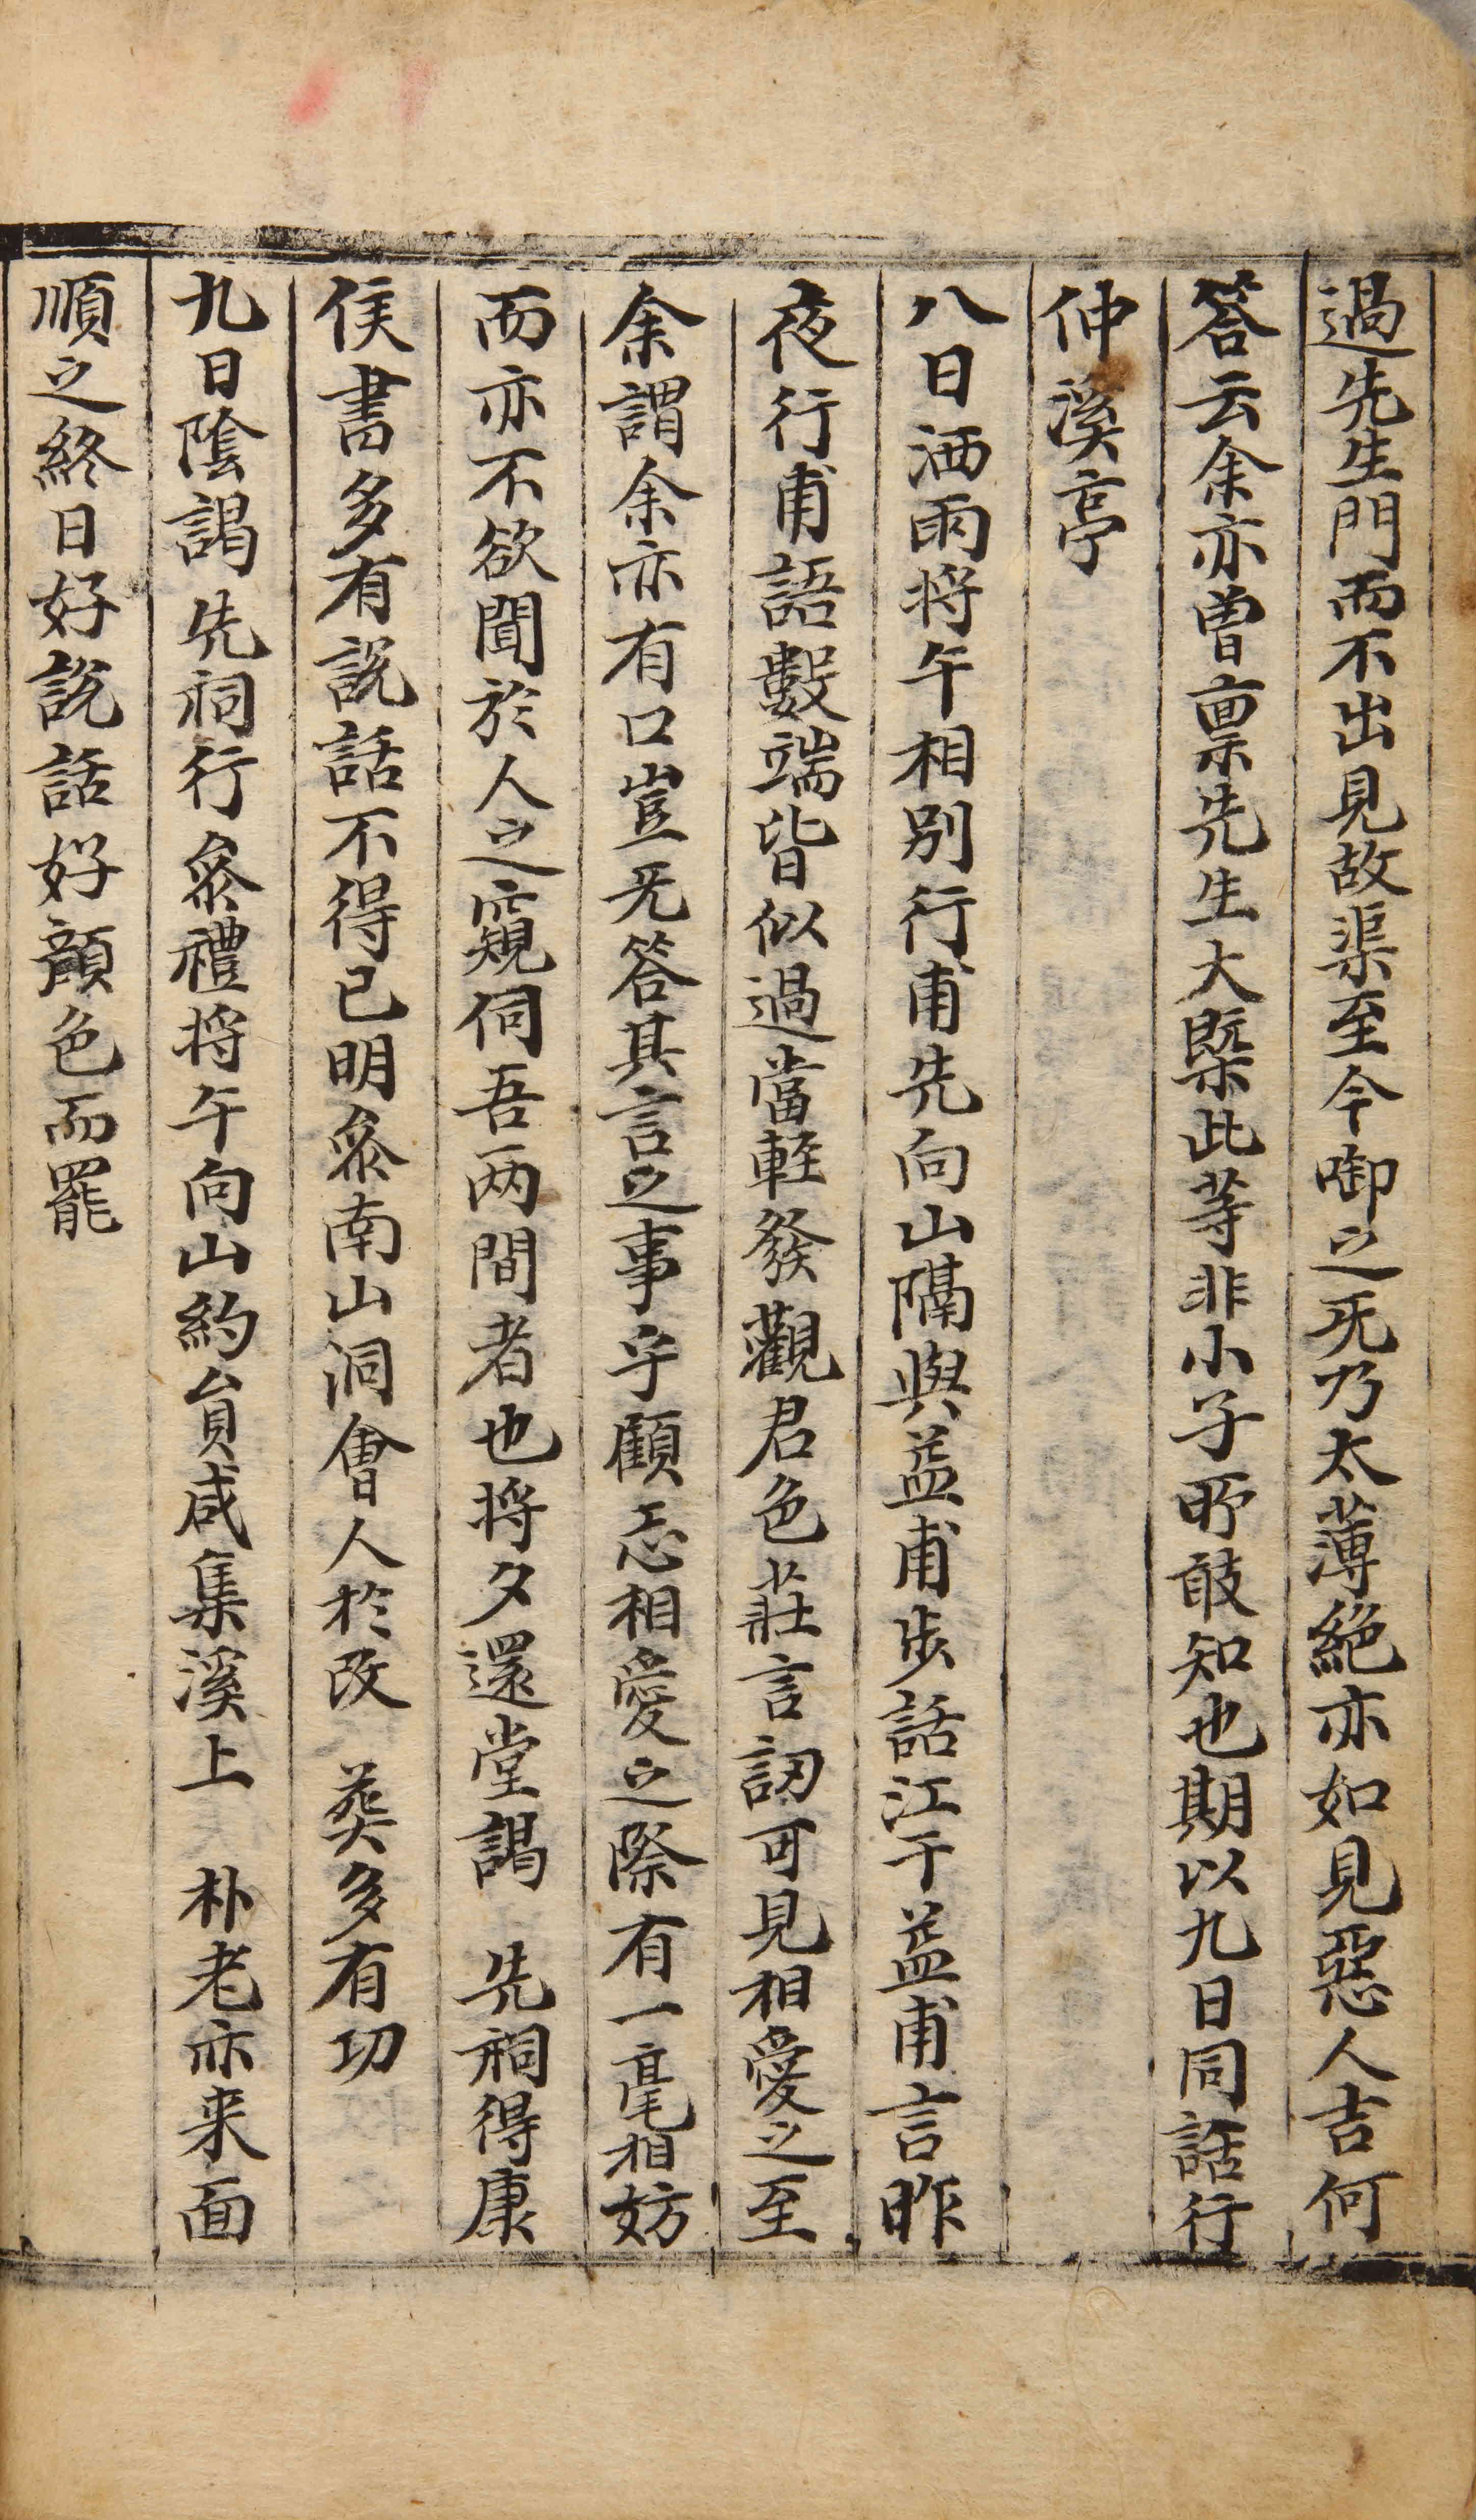 過先生門而不出見故渠至今啣之旡乃太薄絶亦如見惡人吉何
答云余亦曽禀先生大槩此等非小子所敢知也期以九日同話行
仲溪亭
八日洒雨将午相別行甫先向山隔與益甫步話江干益甫言昨
夜行甫語數端皆似過當輕發觀君色莊言訒可見相愛之至
余謂余亦有口豈旡答其言之事乎顧忘相愛之際有一毫相妨
而亦不欲聞於人之窺伺吾两間者也将夕還堂謁 先祠得康
侯書多有説話不得已明叅南山洞會人於改 葬多有切
九日隂謁 先祠行叅禮将午向山約員咸集溪上 朴老亦来面
順之終日好説話好顔色而罷